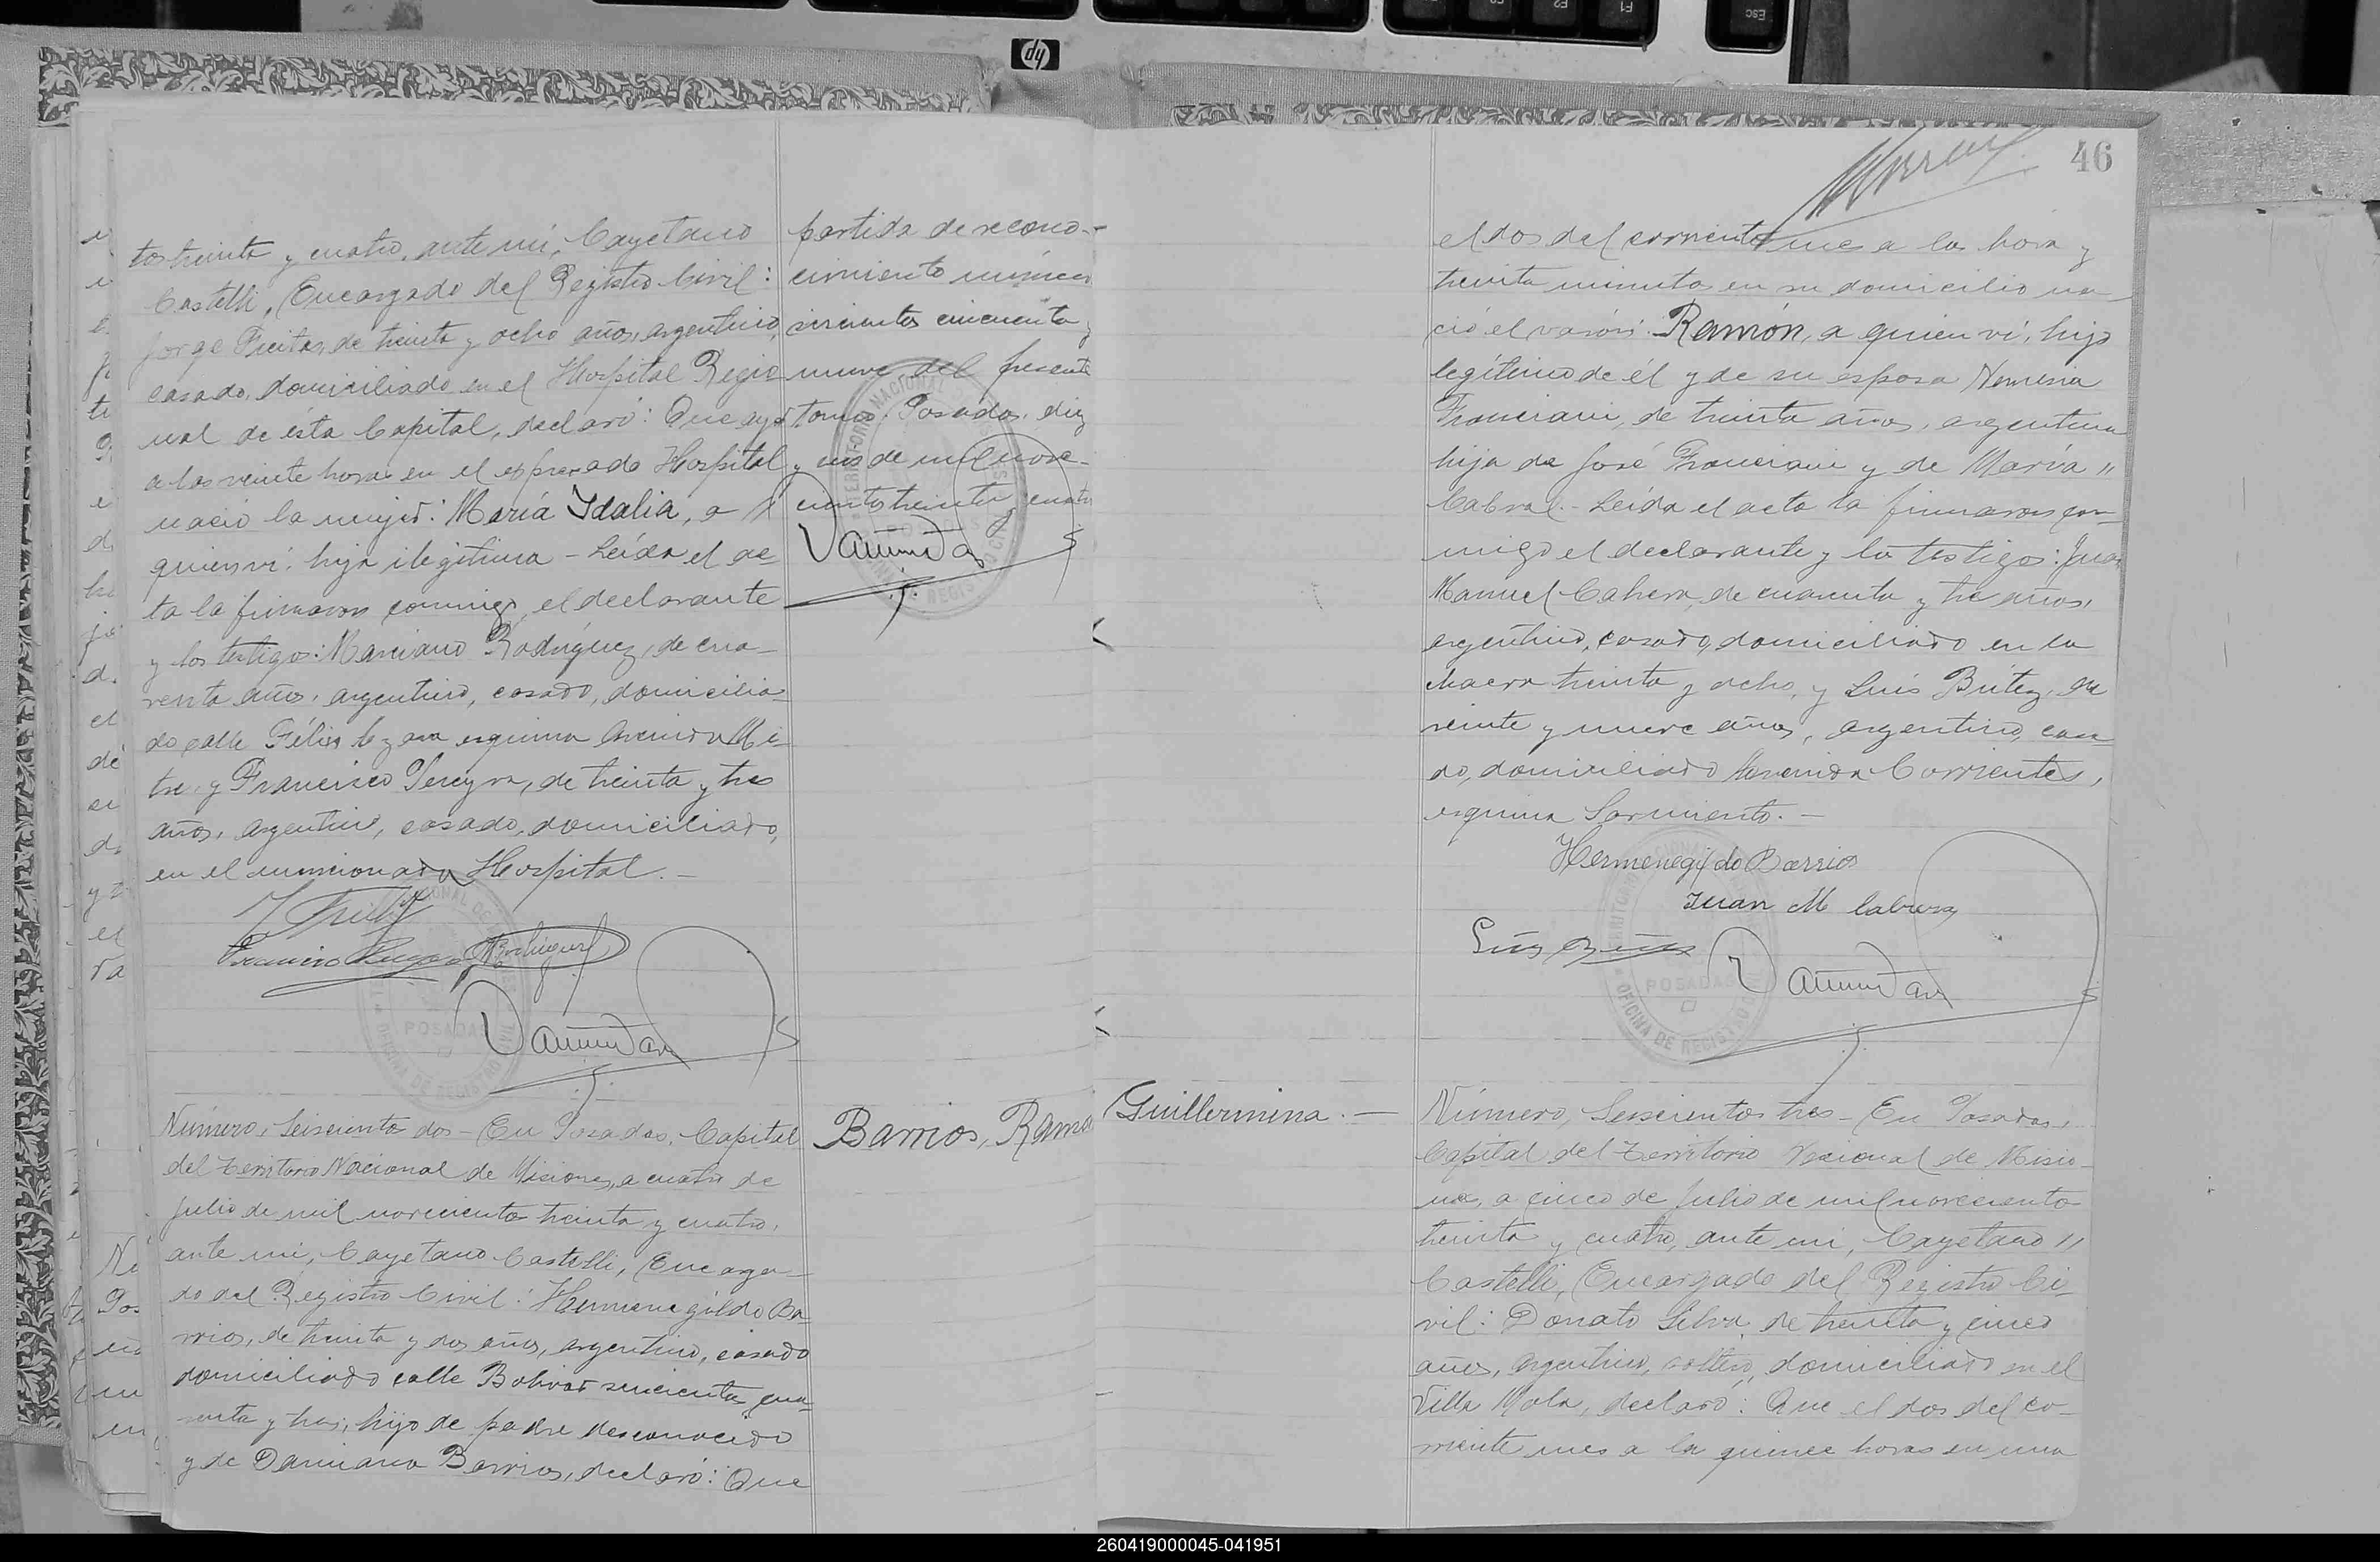 tos treinta y cuatro, ante mi, Cayetano
Castelli, Encargado del Registro Civil:
Jorge Freitas, de treinta y ocho años, argentino,
casado, domiciliado en el Hospital Regio-
nal de ésta Capital, declaró: Que ayer
a las veinte horas en el expresado Hospital
nació la mujer: María Idalia, a
quien ví, hija ilegítima - Leída el ac-
ta la firmaron conmigo, el declarante
y los testigos: Marciano Rodríguez, de cua-
renta años, argentino, casado, domicilia-
do calle Félix de Azara esquina Avenida Mi-
tre y Francisco Pereyra, de treinta y tres
años, argentino, casado, domiciliado,
en el mencionado Hospital. -
partida de recono-
cimiento número
seiscientos cincuenta y
nueve del presente
tomo. Posadas, diez
y seis de mil nove-
cientos treinta y cuatro
POSADAS
POSADAS
Número, Seiscientos dos - En Posadas, Capital
del Territorio Nacional de Misiones, a cuatro de
Julio de mil novecientos treinta y cuatro,
ante mi, Cayetano Castelli, Encarga-
do del Registro Civil: Hermenegildo Ba-
rrios, de treinta y dos años, argentino, casado
domiciliado calle Bolivar seiscientos cua-
renta y tres, hijo de padre desconocido
y de Damiana Barrios, declaró: Que
Barrios, Ramo
46
el dos del corriente mes a las hora y
treinta minutos en su domicilio na-
ció el varón: Ramón, a quien ví, hijo
legítimo de él y de su esposa Nemesia
de treinta años, argentina
hija de José y de María "
Cabral - Leída el acta la firmaron con-
migo el declarante y los testigos: Juan
Manuel Cabrera, de cuarenta y tres años,
argentino, casado, domiciliado en la
chacra treinta y ocho, y Luis Brítez, de
veinte y nueve años, argentino, casa-
do, domiciliado Avenida Corrientes,
esquina Sarmiento. -
Hermenegildo Barrios
Juan M Cabrera
POSADAS
OFICINA DE REGISTRO
Guillermina. -
Número, Seiscientos tres - En Posadas,
Capital del Territorio Nacional de Misio-
nes, a cinco de Julio de mil novecientos
treinta y cuatro, ante mi, Cayetano "
Castelli, Encargado del Registro Ci-
vil: Donato Silva, de treinta y cinco
años, argentino, soltero, domiciliado en el
Villa Mola, declaró: Que el dos del co-
rriente mes a las quince horas en una
hp
Esc
F1
F2
260419000045-041951